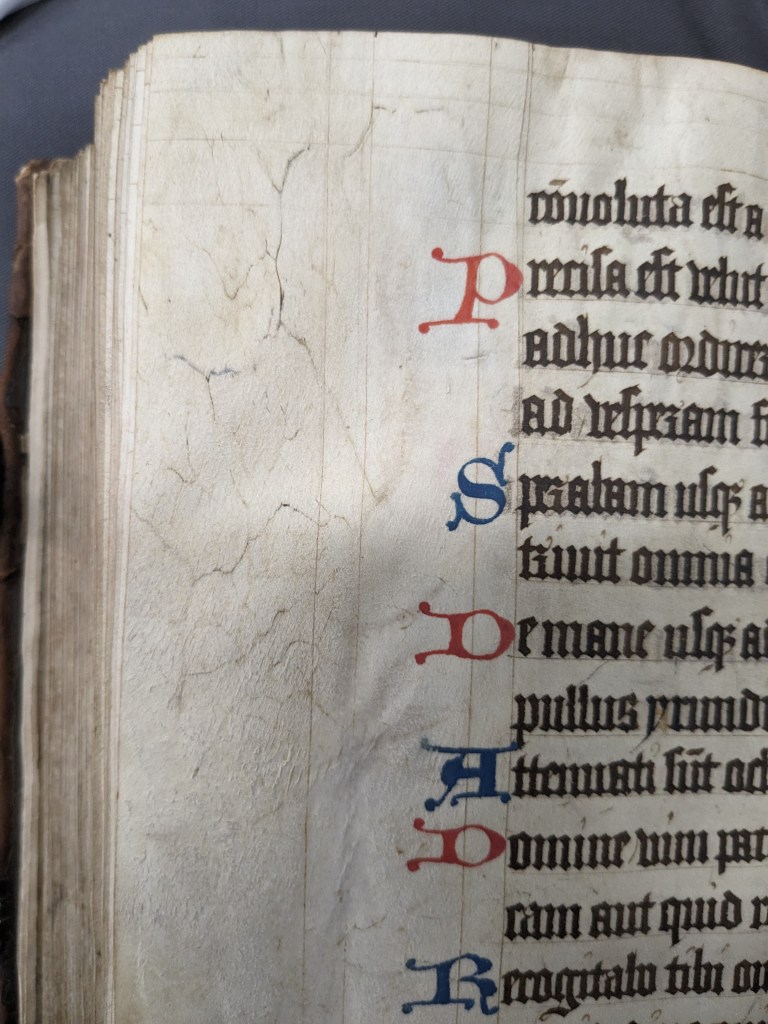 cōuoluta est a
Precisa est velut
adhuc ordirer
ad vesperam fi
Sperabam usqꝫ a
triuit omnia
De mane usqꝫ ad
pullus yrundi
Attenuati sūt ocl
Domine vim pat
cam aut quid r
Recogitabo tibi om